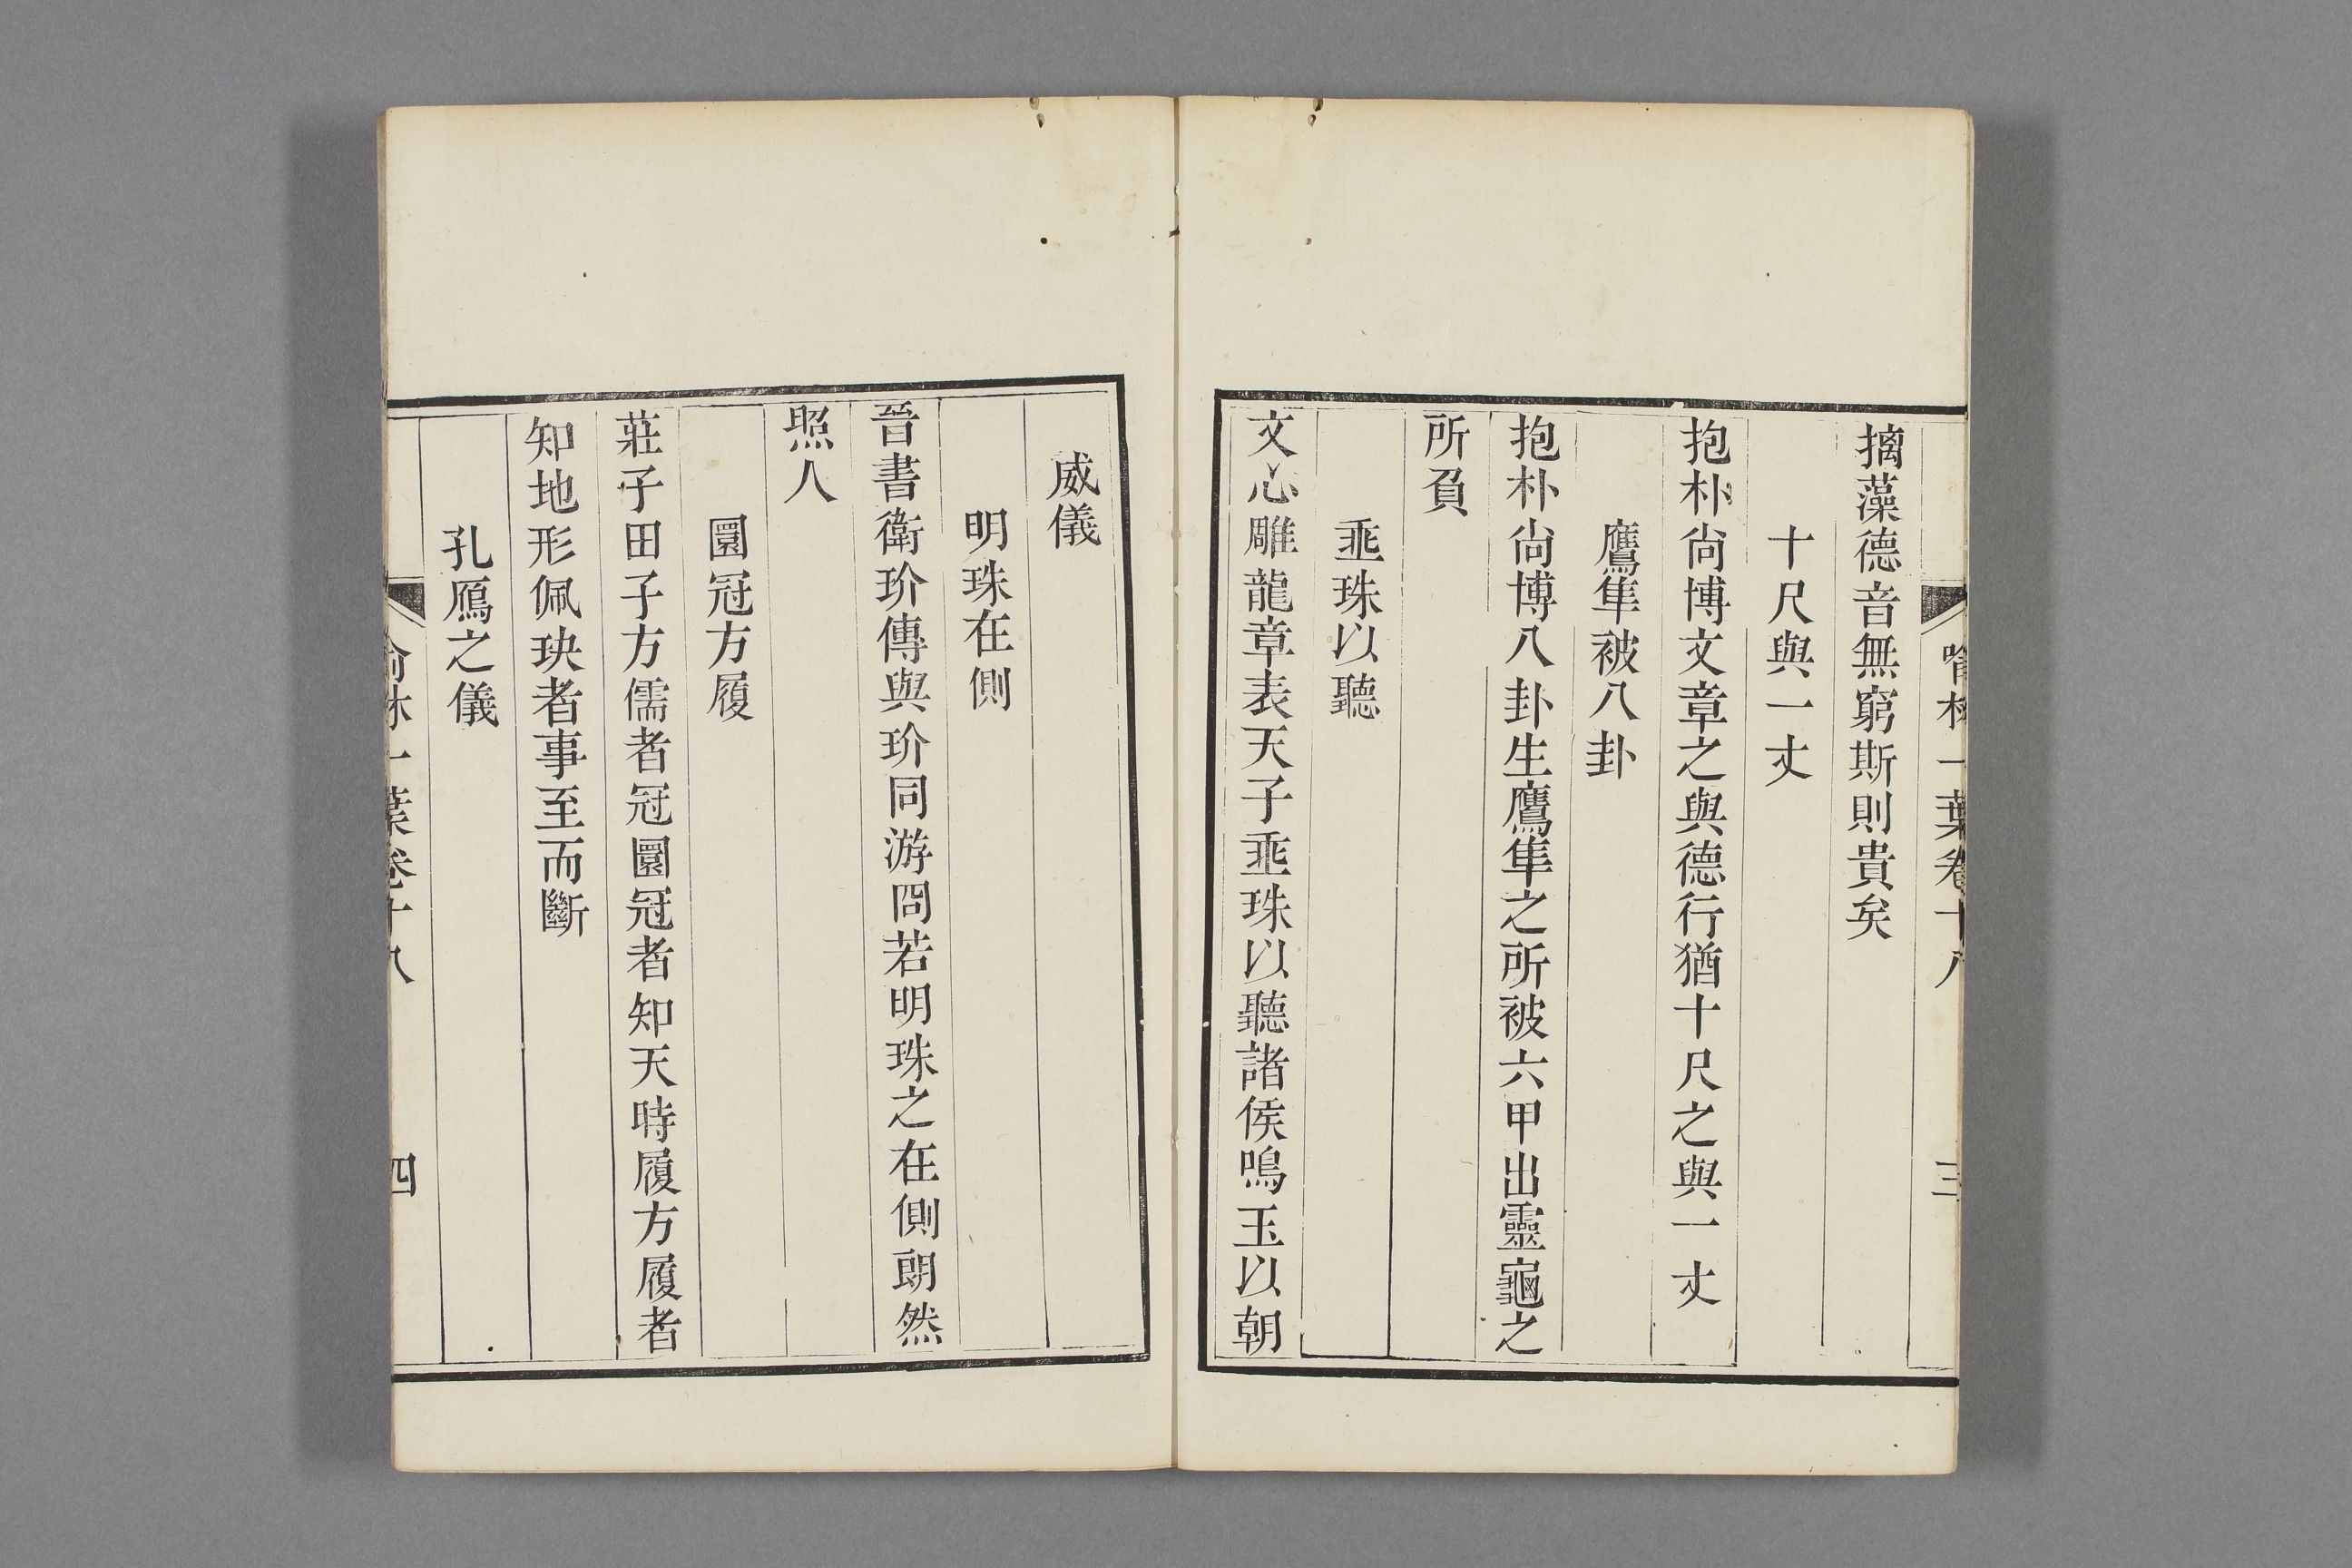 喻林一葉卷十八
三
摛藻德音無窮斯則貴矣
十尺與一丈
抱朴尙博文章之與德行猶十尺之與一丈
鷹隼被八卦
抱朴尙博八卦生鷹隼之所被六甲出靈龜之
所負
垂珠以聽
文心雕龍章表天子垂珠以聽諸侯鳴玉以朝
威儀
明珠在側
晉書衛玠傳與玠同游冏若明珠之在側朗然
照人
圜冠方履
莊子田子方儒者冠圜冠者知天時履方履者
知地形佩玦者事至而斷
孔鴈之儀
喻林一葉卷十八
四